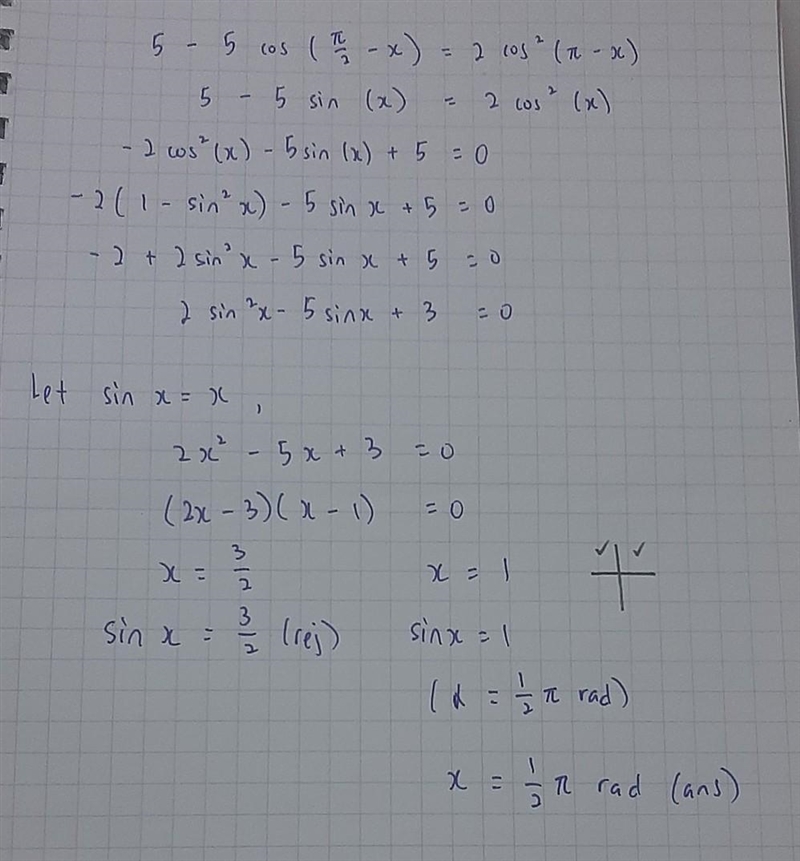 5 - 5 cos (π/2 - x) = 2 cos² (π - x)
5 - 5 sin (x) = 2 cos² (x)
- 2 cos² (x) - 5 sin (x) + 5 = 0
- 2 ( 1 - sin² x) - 5 sin x + 5 = 0
- 2 + 2 sin² x - 5 sin x + 5 = 0
2 sin² x - 5 sin x + 3 = 0
Let sin x = x ,
2x² - 5x + 3 = 0
(2x - 3)(x - 1) = 0
x = 3/2 x = 1 ✓ ✓
sin x = 3/2 (rej) sin x = 1
(α = 1/2 π rad)
x = 1/2 π rad (ans)